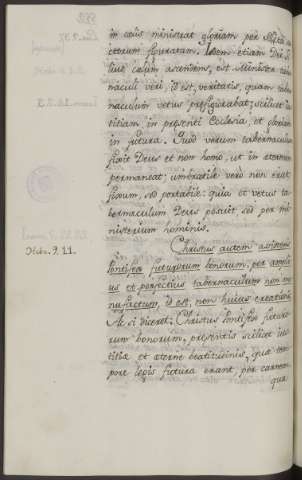 in cœlis ministrat gloriam per
ctorum
lius cælum ascendens, est Minister taber
naculi veri, id est, veritatis, quam taber
naculum vetus præfigurabat; scilicet ius
titiam, in presenti Ecclesia, et gloriam
in futura. Quod verum tabernaculum
fixit Deus et non homo, ut in æternum
permaneat: umbratile verò non erat
fixum, sed portabile: quia et vetus ta
bernaculum Deus posuit sed per mi
nisterium hominis.
Christus autem assistens
Hebr. 9. 11.
Pontifex futurorum bonorum, per ampli
us et perfectius tabernaculum non ma
nufactum, id est, non huius creationis
Ac si diceret: Christus Pontifex futuro
rum bonorum, presentis scilicet ius
titiæ et æterne beatitudinis, quæ tem
pore legis futura erant, per carnem
quæ